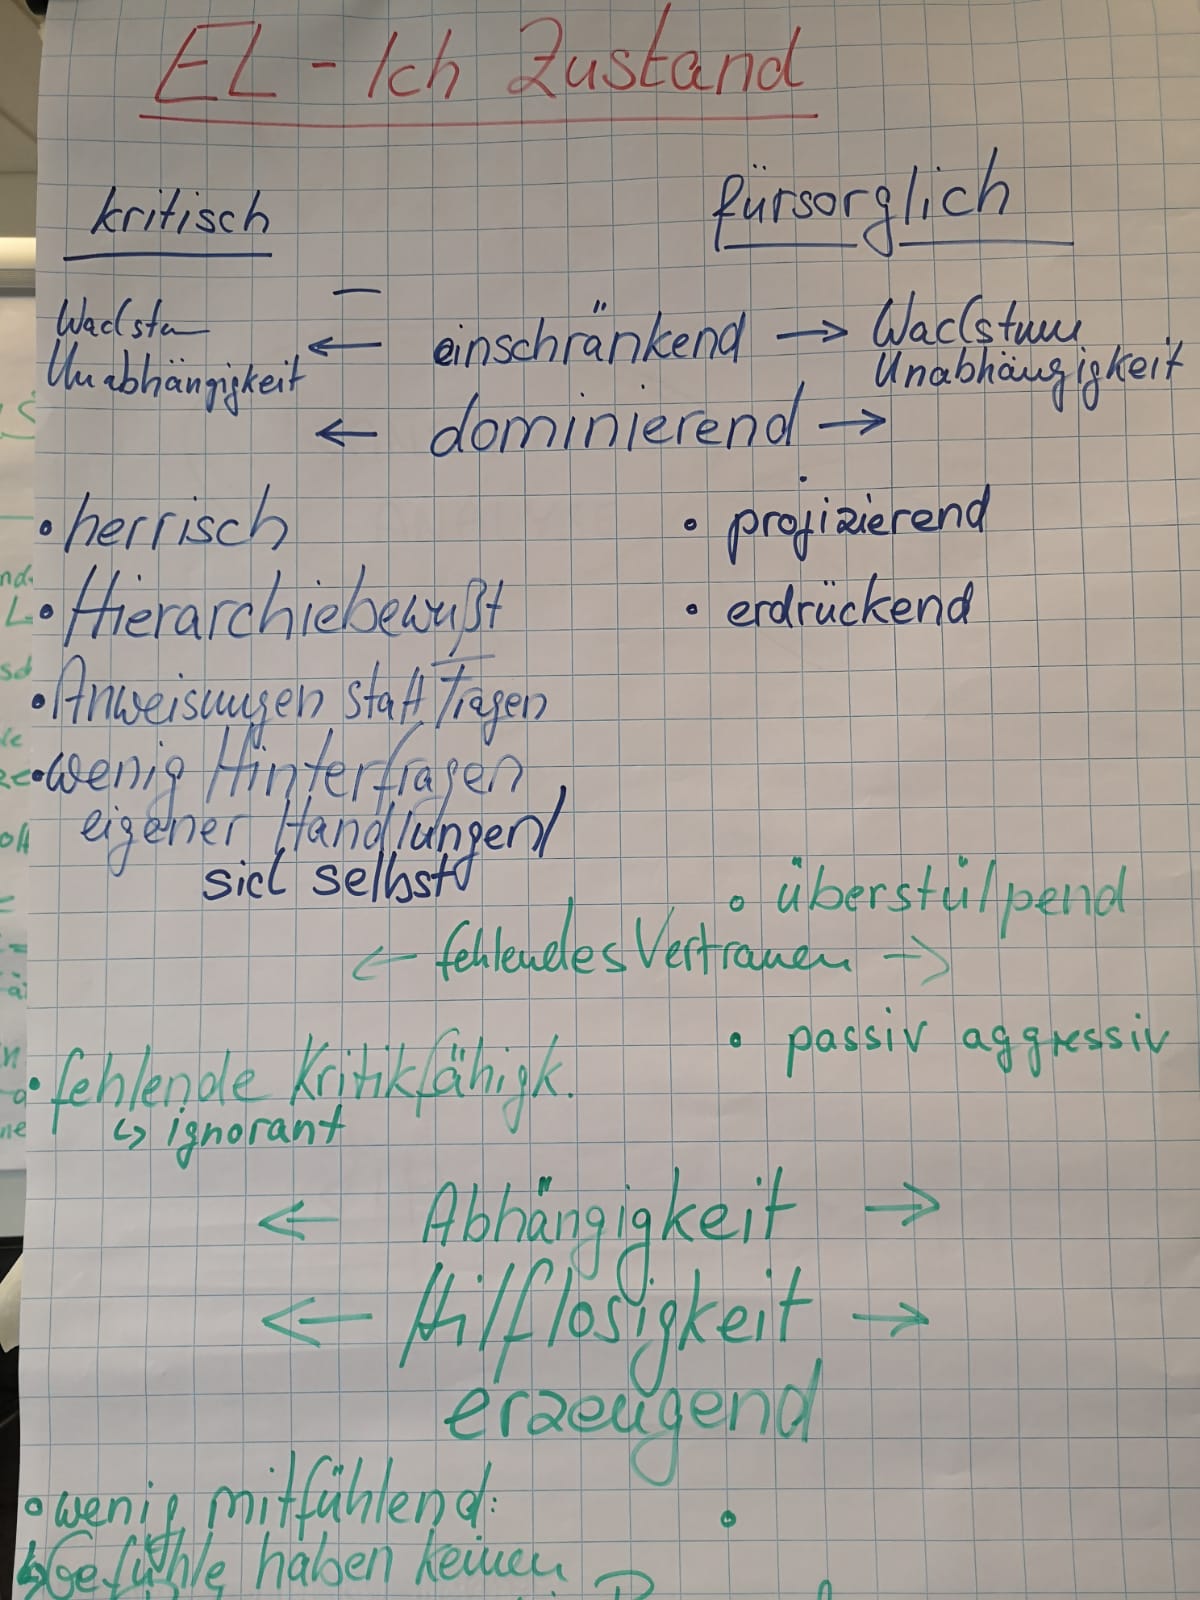 EL - Ich Zustand
kritisch
fürsorglich
—
Wachstum ← einschränkend → Wachstum
Unabhängigkeit Unabhängigkeit
← dominierend →
• herrisch
• projizierend
• Hierarchiebewußt
• erdrückend
• Anweisungen statt Fragen
• wenig Hinterfragen
eigener Handlungen/
sich selbst
• überstülpend
← fehlendes Vertrauen →
• passiv aggressiv
• fehlende Kritikfähigk.
↳ ignorant
← Abhängigkeit →
← Hilflosigkeit →
erzeugend
• wenig mitfühlend:
•
↳ Gefühle haben keinen